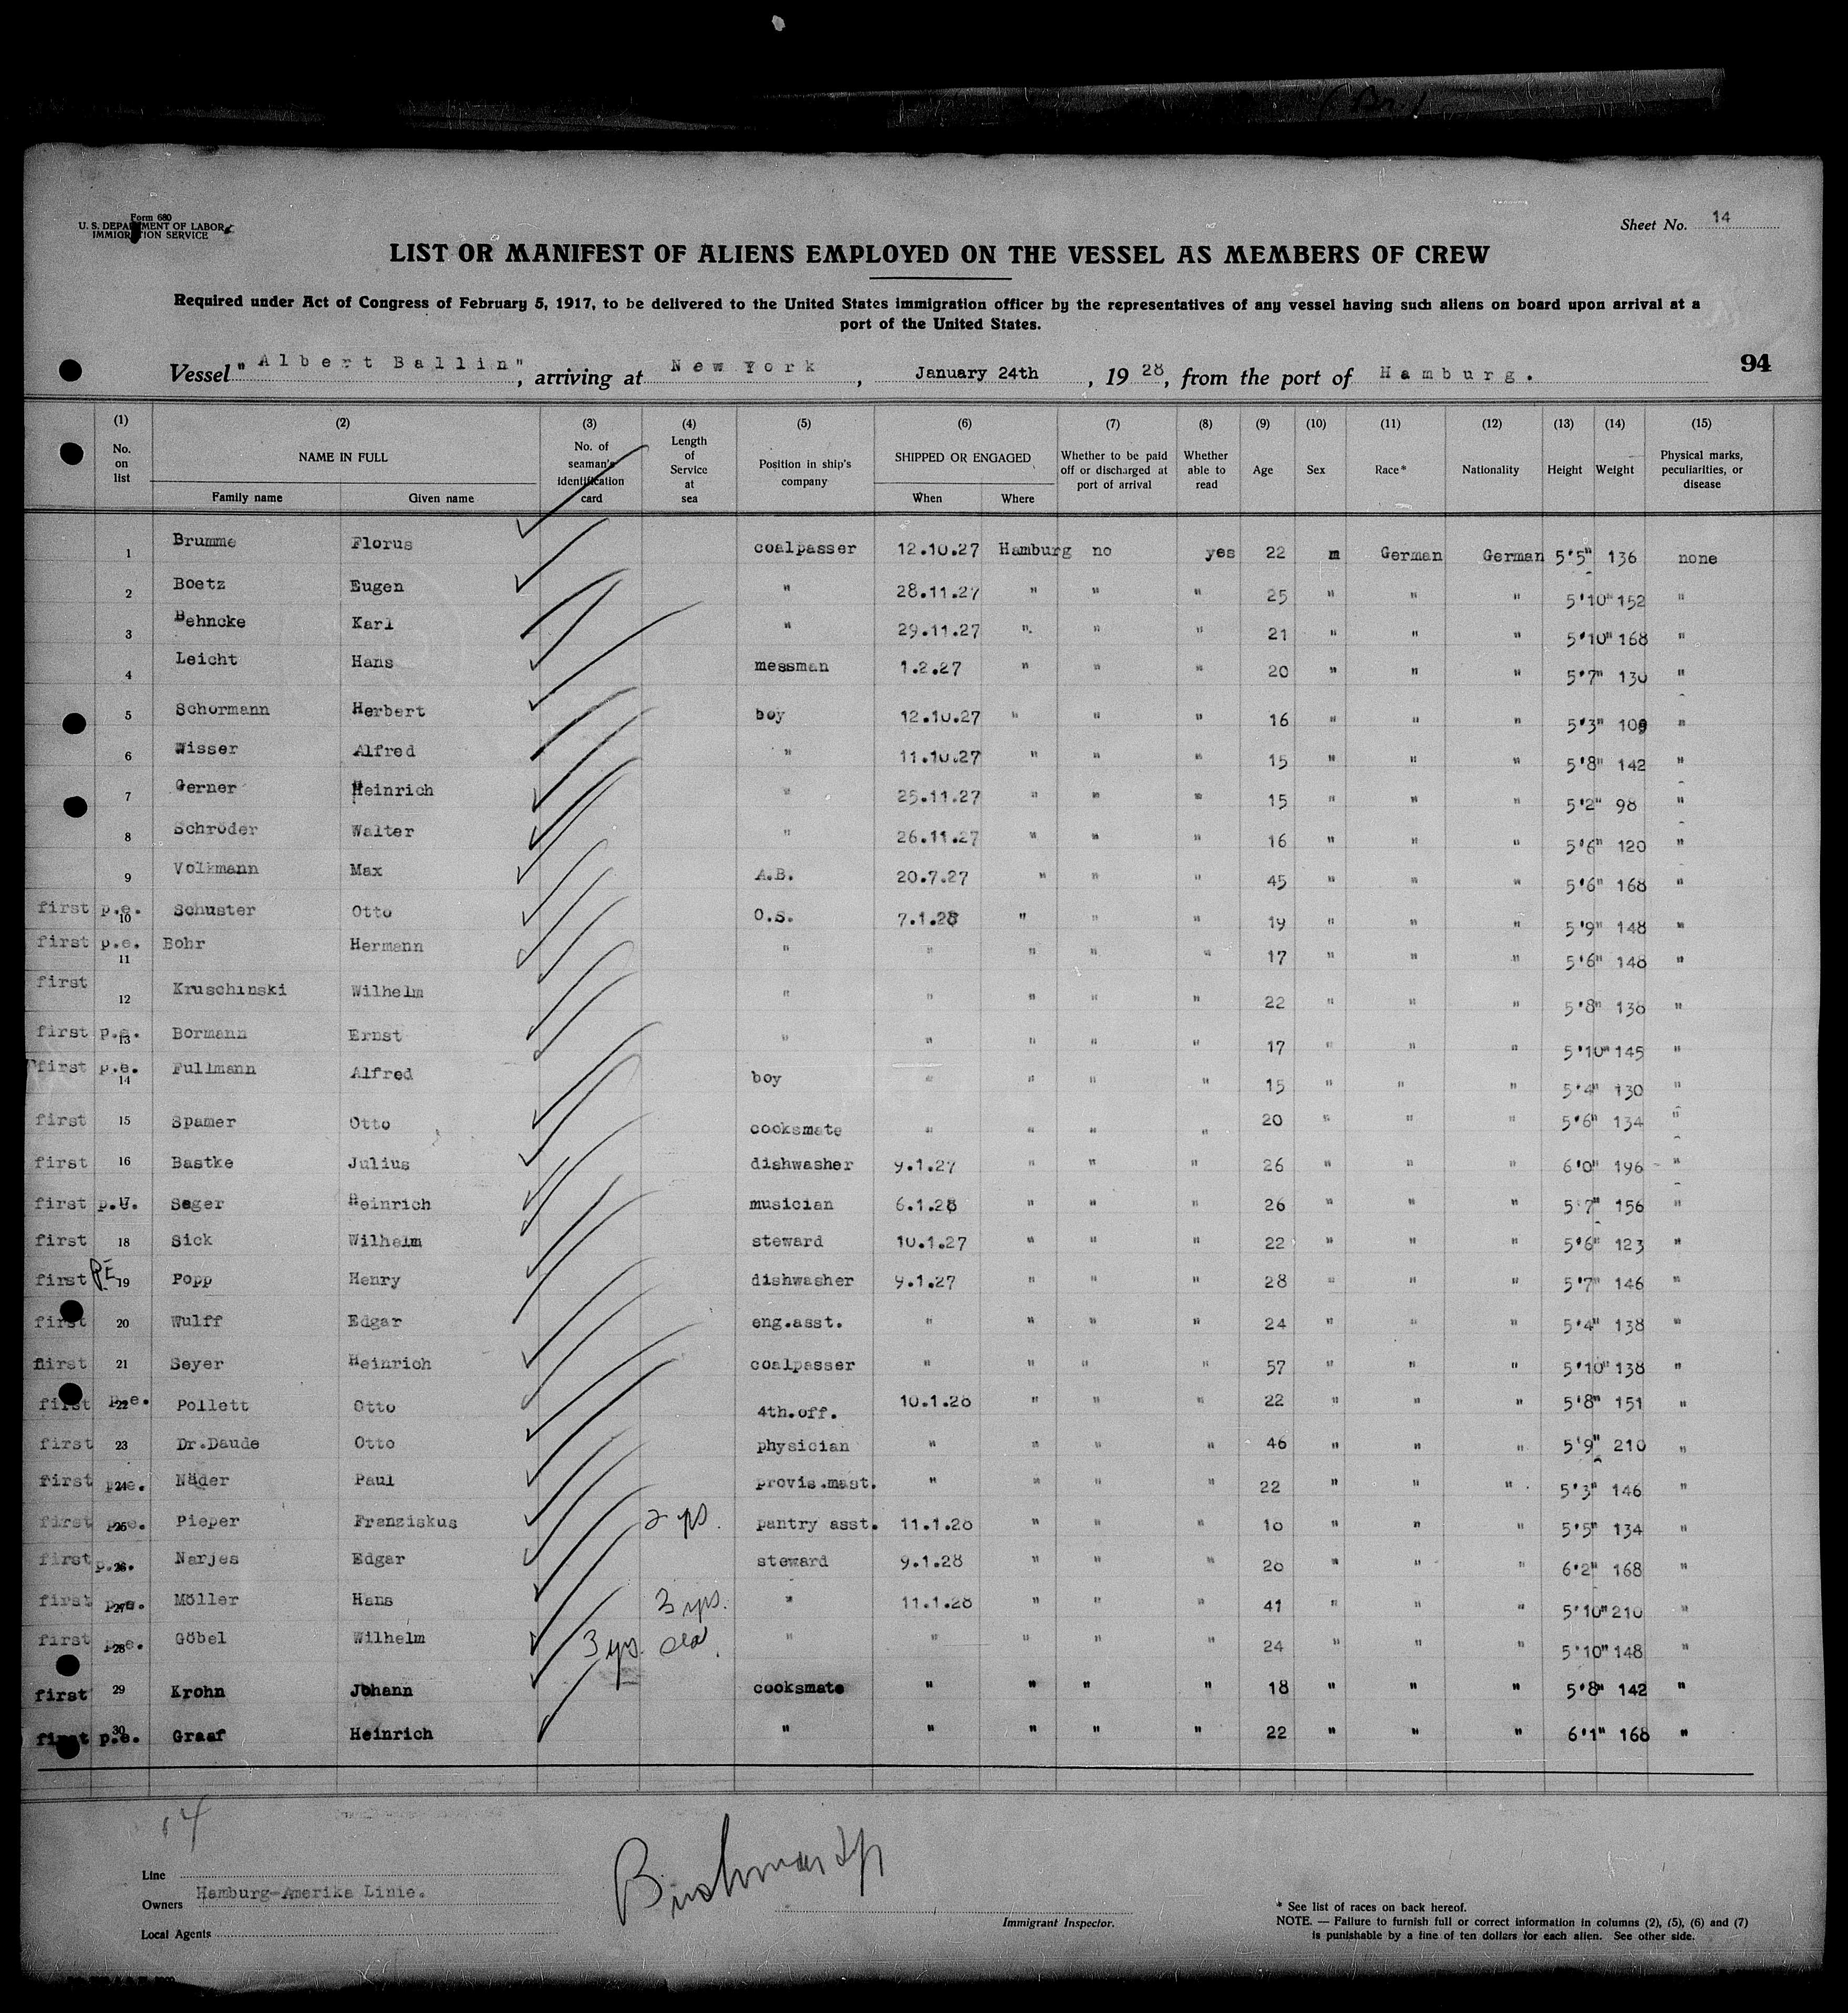 Form 680
U. S. DEPARTMENT OF LABOR
IMMIGRATION SERVICE
Sheet No. 14
LIST OR MANIFEST OF ALIENS EMPLOYED ON THE VESSEL AS MEMBERS OF CREW
Required under Act of Congress of February 5, 1917, to be delivered to the United States immigration officer by the representatives of any vessel having such aliens on board upon arrival at a
port of the United States.
Vessel "Albert Ballin", arriving at New York, January 24th, 1928, from the port of Hamburg. 94
(1) (2) (3) (4) (5) (6) (7) (8) (9) (10) (11) (12) (13) (14) (15)
No. on list NAME IN FULL Family name Given name No. of seaman's identification card Length of Service at sea Position in ship's company SHIPPED OR ENGAGED When Where Whether to be paid off or discharged at port of arrival Whether able to read Age Sex Race* Nationality Height Weight Physical marks, peculiarities, or disease
1 Brumme Florus coalpasser 12.10.27 Hamburg no yes 22 m German German 5'5" 136 none
2 Boetz Eugen " 28.11.27 " " " 25 " " " 5'10" 152 "
3 Behncke Karl " 29.11.27 " " " 21 " " " 5'10" 168 "
4 Leicht Hans messman 1.2.27 " " " 20 " " " 5'7" 130 "
5 Schormann Herbert boy 12.10.27 " " " 16 " " " 5'3" 109 "
6 Wisser Alfred " 11.10.27 " " " 15 " " " 5'8" 142 "
7 Gerner Heinrich " 25.11.27 " " " 15 " " " 5'2" 98 "
8 Schröder Walter " 26.11.27 " " " 16 " " " 5'6" 120 "
9 Volkmann Max A.B. 20.7.27 " " " 45 " " " 5'6" 168 "
first p.e. 10 Schuster Otto O.S. 7.1.28 " " " 19 " " " 5'9" 148 "
first p.e. 11 Bohr Hermann " " " " " 17 " " " 5'6" 148 "
first 12 Kruschinski Wilhelm " " " " " 22 " " " 5'8" 138 "
first p.e. 13 Bormann Ernst " " " " " 17 " " " 5'10" 145 "
first p.e. 14 Fullmann Alfred boy " " " " 15 " " " 5'4" 130 "
first 15 Spamer Otto cooksmate " " " " 20 " " " 5'6" 134 "
first 16 Bastke Julius dishwasher 9.1.27 " " " 26 " " " 6'0" 196 "
first p.e. 17 Seger Heinrich musician 6.1.28 " " " 26 " " " 5'7" 156 "
first 18 Sick Wilhelm steward 10.1.27 " " " 22 " " " 5'6" 123 "
first PE 19 Popp Henry dishwasher 9.1.27 " " " 28 " " " 5'7" 146 "
first 20 Wulff Edgar eng.asst. " " " " 24 " " " 5'4" 138 "
first 21 Seyer Heinrich coalpasser " " " " 57 " " " 5'10" 138 "
first p.e. 22 Pollett Otto 4th.off. 10.1.28 " " " 22 " " " 5'8" 151 "
first 23 Dr.Daude Otto physician " " " " 46 " " " 5'9" 210 "
first p.e. 24 Näder Paul provis.mast. " " " " 22 " " " 5'3" 146 "
first p.e. 25 Pieper Franziskus 2 yrs. pantry asst. 11.1.28 " " " 18 " " " 5'5" 134 "
first p.e. 26 Narjes Edgar steward 9.1.28 " " " 28 " " " 6'2" 168 "
first p.e. 27 Möller Hans 3 yrs. " 11.1.28 " " " 41 " " " 5'10" 210 "
first p.e. 28 Göbel Wilhelm 3 yrs. " " " " " 24 " " " 5'10" 148 "
first 29 Krohn Johann cooksmate " " " " 18 " " " 5'8" 142 "
first p.e. 30 Graaf Heinrich " " " " " 22 " " " 6'1" 168 "
Line
Owners Hamburg-Amerika Linie.
Local Agents
Immigrant Inspector.
* See list of races on back hereof.
NOTE. — Failure to furnish full or correct information in columns (2), (5), (6) and (7)
is punishable by a fine of ten dollars for each alien. See other side.